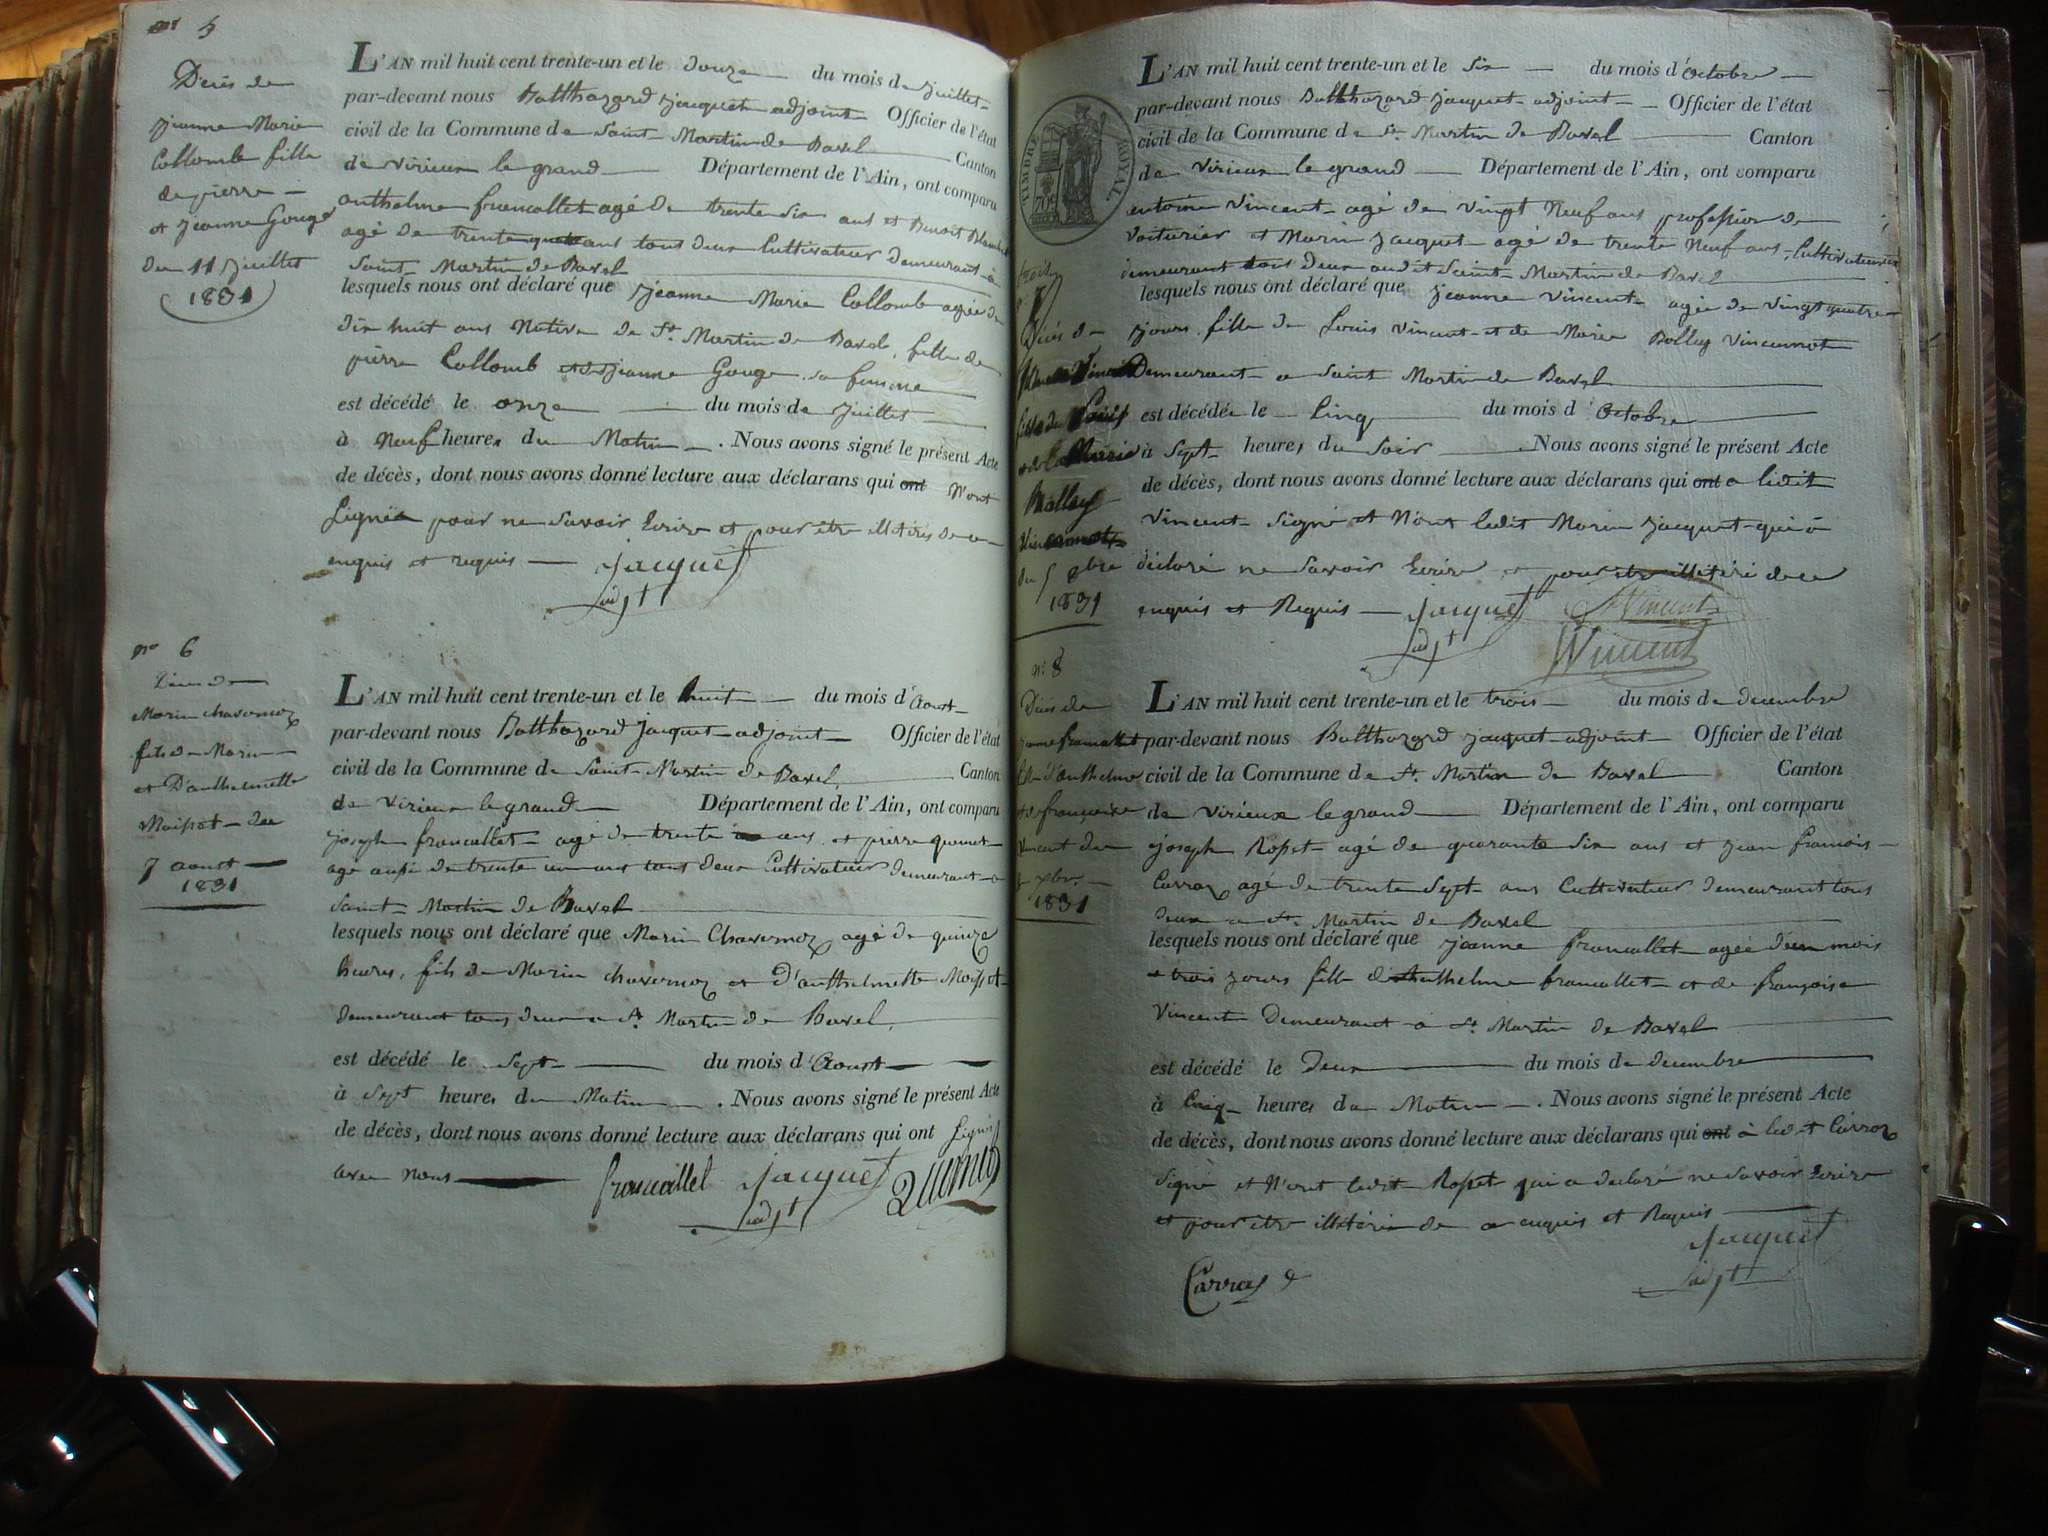 n° 5
Décès de
jeanne Marie
Collomb fille
de pierre
et jeanne Gouge
du 11 juillet
1831
L'AN mil huit cent trente-un et le douze du mois de juillet
par-devant nous Balthazard jacquet adjoint Officier de l'état
civil de la Commune de Saint Martin de Bavel Canton
de Virieux le grand Département de l'Ain, ont comparu
anthelme francallet agé de trente six ans et Benoit
agé de trente quatre ans tous deux Cultivateur demeurant à
Saint Martin de Bavel
lesquels nous ont déclaré que jeanne Marie Collomb agée de
dix huit ans Native de St Martin de Bavel, fille de
pierre Collomb et de jeanne Gouge sa femme
est décédé le onze du mois de juillet
à Neuf heures du Matin. Nous avons signé le présent Acte
de décès, dont nous avons donné lecture aux déclarans qui ont N'ont
Signé pour ne Savoir Ecrire et pour être illitérés de ce
enquis et requis jacquet
adjt
n° 6
Décès de
Marin chavornoz
fils de Marin
et D'anthelmette
Moissot du
7 aoust
1831
L'AN mil huit cent trente-un et le huit du mois d'Aoust
par-devant nous Balthazard Jacquet adjoint Officier de l'état
civil de la Commune de Saint Martin de Bavel Canton
de Virieux le grand Département de l'Ain, ont comparu
joseph francallet agé de trente ans et pierre quemet
agé aussi de trente un ans tous deux Cultivateur demeurant a
Saint Martin de Bavel
lesquels nous ont déclaré que Marin Chavornoz agé de quinze
heures, fils de Marin chavornoz et d'anthelmette Moissot
demeurant tous deux a St Martin de Bavel,
est décédé le Sept du mois d'Aoust
à Sept heures du Matin. Nous avons signé le présent Acte
de décès, dont nous avons donné lecture aux déclarans qui ont Signé
avec nous francallet jacquet
adjt
TIMBRE ROYAL
Décès de
fille de Louis
et de Marie
Bolley
Vincennot
du 5 8bre
1831
L'AN mil huit cent trente-un et le Six du mois d'Octobre
par-devant nous Balthazard jacquet adjoint Officier de l'état
civil de la Commune de St Martin de Bavel Canton
de Virieux le grand Département de l'Ain, ont comparu
antoine Vincent agé de vingt Neuf ans profession de
Voiturier et Marin jacquet agé de trente Neuf ans, Cultivateur
demeurant tous deux audit Saint Martin de Bavel
lesquels nous ont déclaré que jeanne Vincent agée de vingt quatre
jours fille de Louis Vincent et de Marie Bolley Vincennot
Demeurant a Saint Martin de Bavel
est décédée le Cinq du mois d'Octobre
à Sept heures du Soir. Nous avons signé le présent Acte
de décès, dont nous avons donné lecture aux déclarans qui ont a ledit
Vincent Signé et N'ont ledit Marin jacquet qui a
déclaré ne Savoir Ecrire et pour être illitéré de ce
enquis et Requis jacquet Vincent
adjt Vincent
n° 8
Décès de
jeanne francallet
fille d'anthelme
et de françoise
Vincent du
xbre
1831
L'AN mil huit cent trente-un et le trois du mois de decembre
par-devant nous Balthazard jacquet adjoint Officier de l'état
civil de la Commune de St Martin de Bavel Canton
de Virieux le grand Département de l'Ain, ont comparu
joseph Rosset agé de quarante Six ans et jean francois
Carraz agé de trente Sept ans Cultivateur demeurant tous
deux a St Martin de Bavel
lesquels nous ont déclaré que jeanne francallet agée d'un mois
et trois jours fille de Anthelme francallet et de françoise
Vincent Demeurant a St Martin de Bavel
est décédé le Deux du mois de decembre
à Cinq heures du Matin. Nous avons signé le présent Acte
de décès, dont nous avons donné lecture aux déclarans qui ont à led et Carraz
Signé et N'ont ledit Rosset qui a declaré ne Savoir Ecrire
et pour être illitéré de ce enquis et Requis
jacquet
Carraz adjt